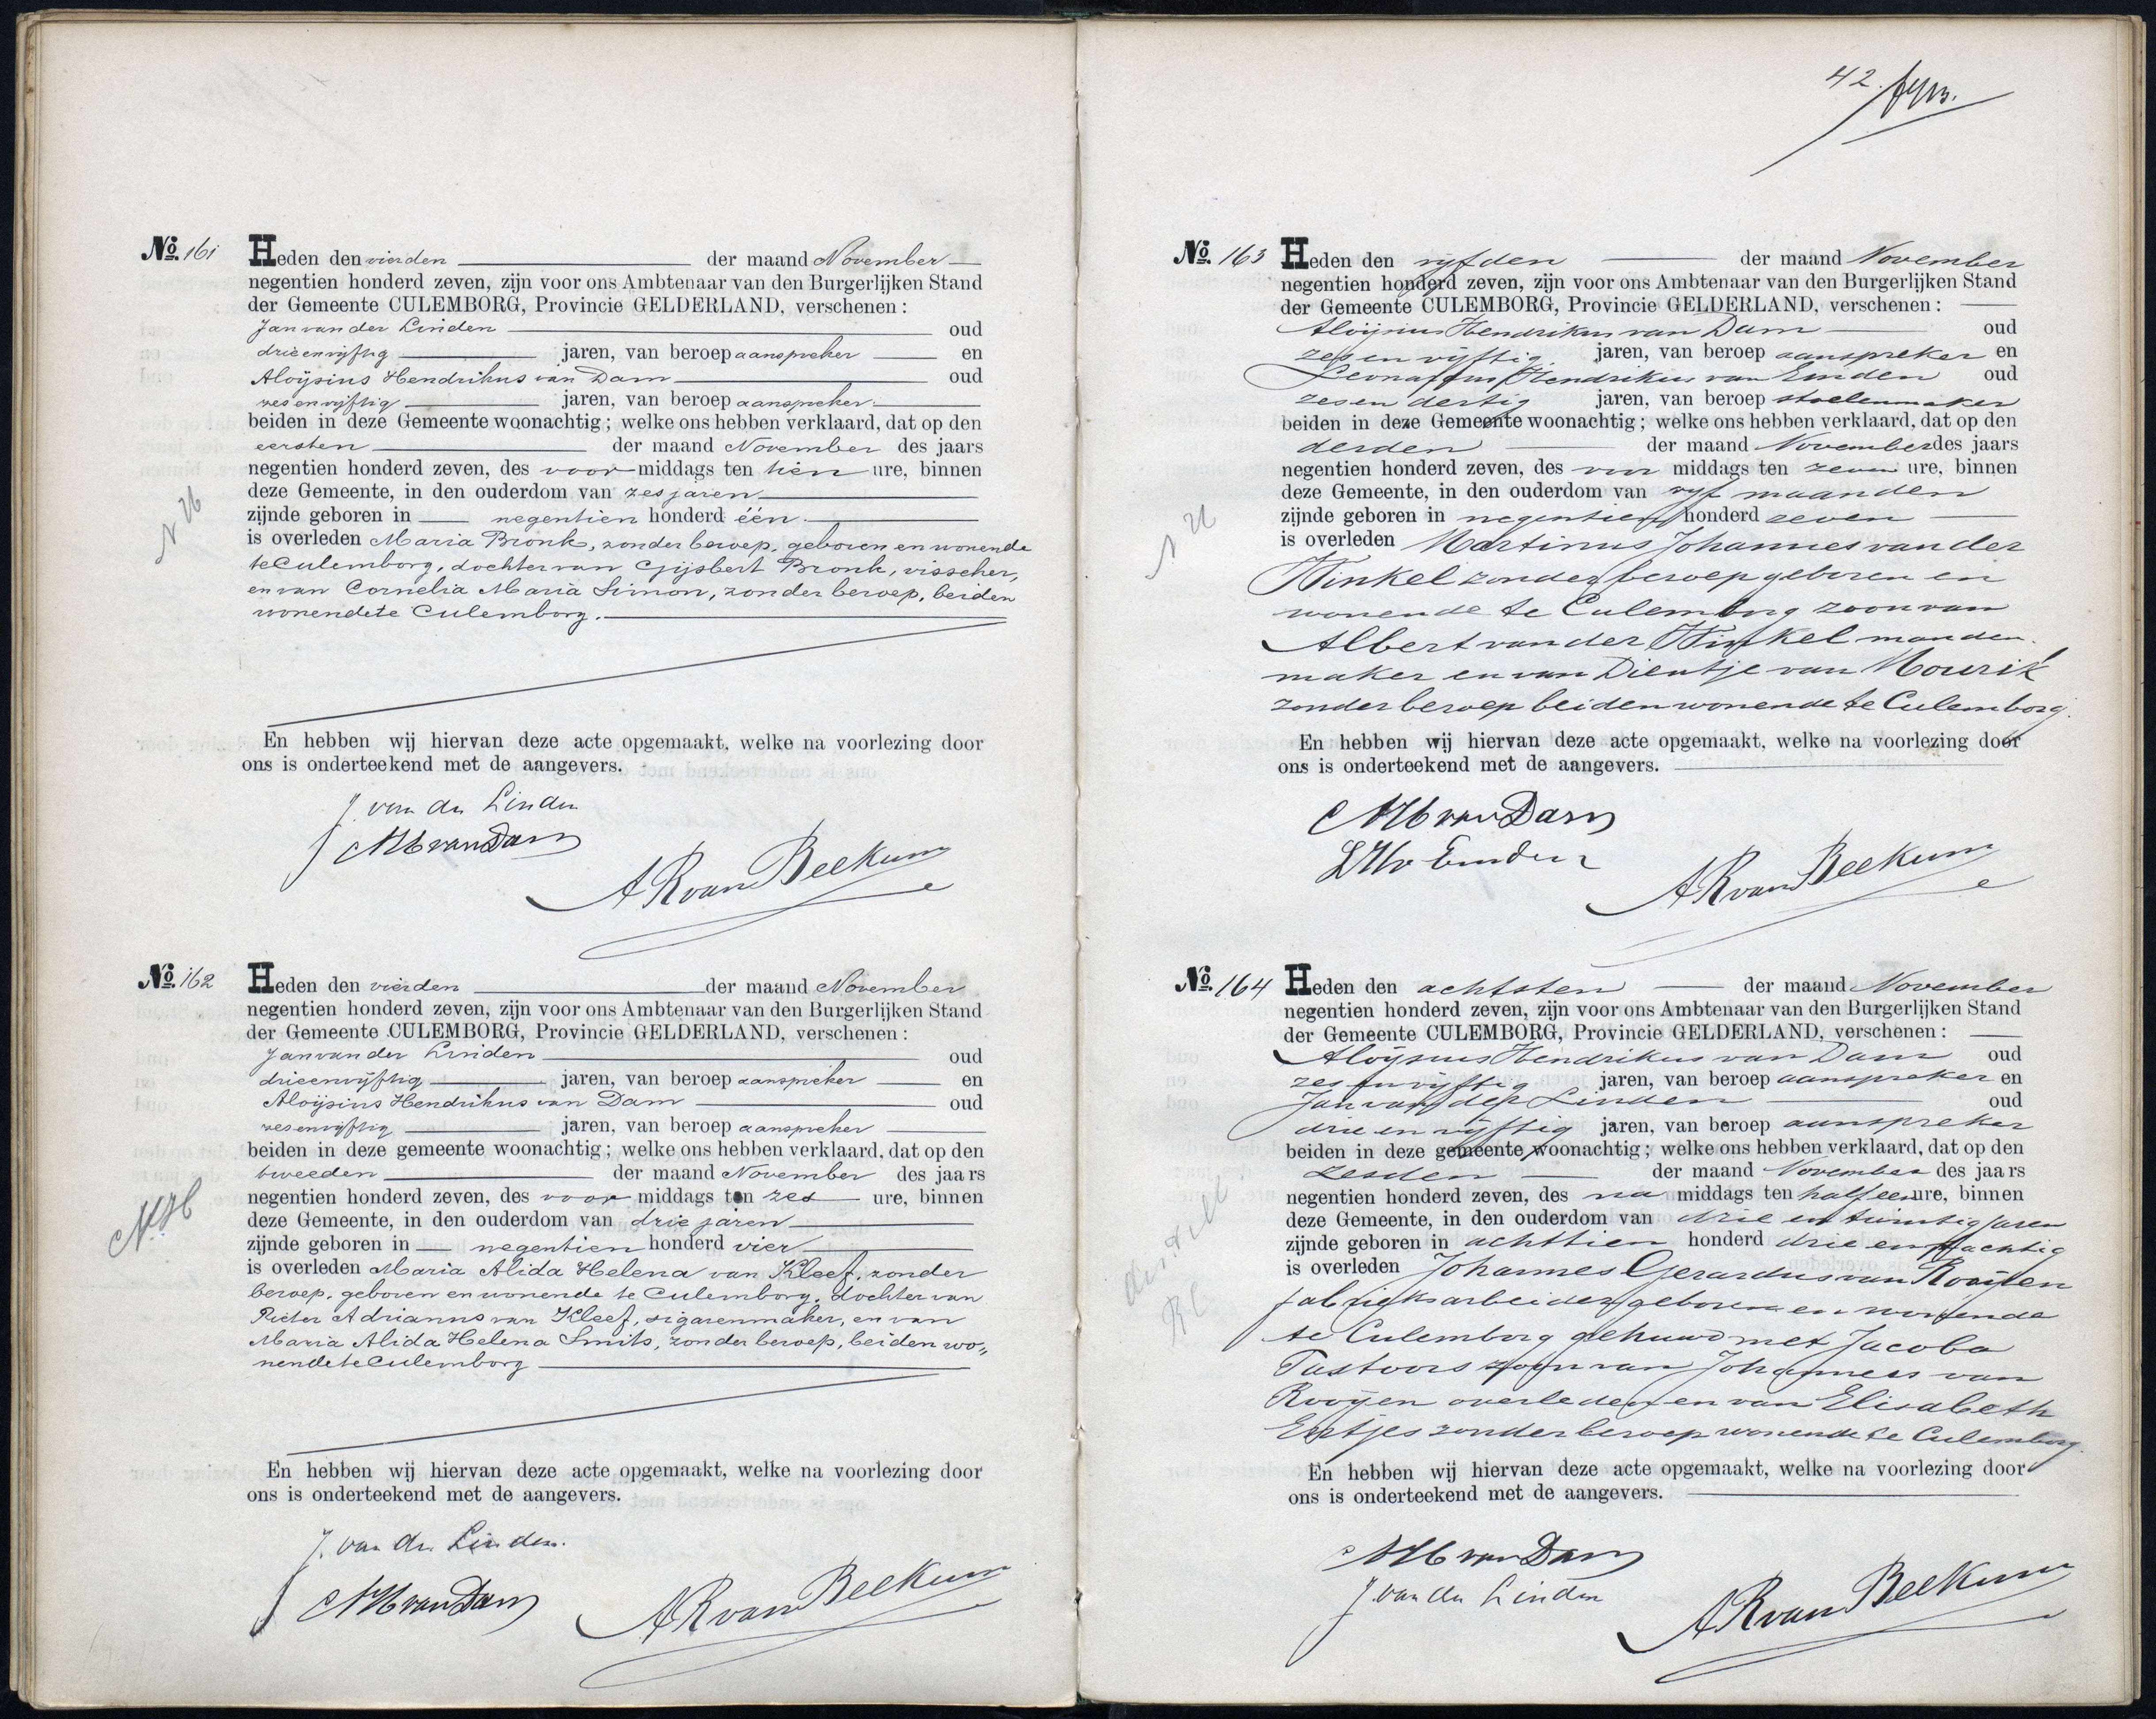 No. 161 Heden den vierden der maand November
negentien honderd zeven, zijn voor ons Ambtenaar van den Burgerlijken Stand
der Gemeente CULEMBORG, Provincie GELDERLAND, verschenen:
Jan van der Linden oud
drieenvijftig jaren, van beroep aanspreker en
Aloÿsius Hendrikus van Dam oud
zesenvijftig jaren, van beroep aanspreker
beiden in deze Gemeente woonachtig; welke ons hebben verklaard, dat op den
eersten der maand November des jaars
negentien honderd zeven, des voor middags ten tien ure, binnen
deze Gemeente, in den ouderdom van zes jaren
zijnde geboren in negentien honderd één
is overleden Maria Bronk, zonder beroep, geboren en wonende
te Culemborg, dochter van Gijsbert Bronk, visscher,
en van Cornelia Maria Simon, zonder beroep, beiden
wonende te Culemborg.
N H
En hebben wij hiervan deze acte opgemaakt, welke na voorlezing door
ons is onderteekend met de aangevers.
J. van der Linden
AH van Dam
AR van Beekum
No. 162 Heden den vierden der maand November
negentien honderd zeven, zijn voor ons Ambtenaar van den Burgerlijken Stand
der Gemeente CULEMBORG, Provincie GELDERLAND, verschenen:
Jan van der Linden oud
drieenvijftig jaren, van beroep aanspreker en
Aloÿsius Hendrikus van Dam oud
zesenvijftig jaren, van beroep aanspreker
beiden in deze gemeente woonachtig; welke ons hebben verklaard, dat op den
tweeden der maand November des jaars
negentien honderd zeven, des voor middags ten zes ure, binnen
deze Gemeente, in den ouderdom van drie jaren
zijnde geboren in negentien honderd vier
is overleden Maria Alida Helena van Kleef, zonder
beroep, geboren en wonende te Culemborg, dochter van
Pieter Adrianus van Kleef, sigarenmaker, en van
Maria Alida Helena Smits, zonder beroep, beiden wo„
nende te Culemborg
N.H
En hebben wij hiervan deze acte opgemaakt, welke na voorlezing door
ons is onderteekend met de aangevers.
J. van der Linden.
AH van Dam
AR van Beekum
42.
No. 163 Heden den vijfden der maand November
negentien honderd zeven, zijn voor ons Ambtenaar van den Burgerlijken Stand
der Gemeente CULEMBORG, Provincie GELDERLAND, verschenen:
Aloÿsius Hendrikus van Dam oud
zes en vijftig jaren, van beroep aanspreker en
Leonardus Hendrikus van Emden oud
zes en dertig jaren, van beroep stoelenmaker
beiden in deze Gemeente woonachtig; welke ons hebben verklaard, dat op den
derden der maand November des jaars
negentien honderd zeven, des voor middags ten zeven ure, binnen
deze Gemeente, in den ouderdom van vijf maanden
zijnde geboren in negentien honderd zeven
is overleden Martinus Johannes van der
Winkel zonder beroep geboren en
wonende te Culemborg zoon van
Albert van der Winkel manden
maker en van Dientje van Mourik
zonder beroep beiden wonende te Culemborg.
N H
En hebben wij hiervan deze acte opgemaakt, welke na voorlezing door
ons is onderteekend met de aangevers.
AH van Dam
LH v Emden
AR van Beekum
No. 164 Heden den achtsten der maand November
negentien honderd zeven, zijn voor ons Ambtenaar van den Burgerlijken Stand
der Gemeente CULEMBORG, Provincie GELDERLAND, verschenen:
Aloÿsius Hendrikus van Dam oud
zes en vijftig jaren, van beroep aanspreker en
Jan van der Linden oud
drie en vijftig jaren, van beroep aanspreker
beiden in deze gemeente woonachtig; welke ons hebben verklaard, dat op den
zesden der maand November des jaars
negentien honderd zeven, des na middags ten half een ure, binnen
deze Gemeente, in den ouderdom van drie en twintig jaren
zijnde geboren in achttien honderd drie en tachtig
is overleden Johannes Gerardus van Rooÿen
fabrieksarbeider geboren en wonende
te Culemborg gehuwd met Jacoba
Tastoors zoon van Johannes van
Rooÿen overleden en van Elisabeth
zonder beroep wonende te Culemborg.
RC
En hebben wij hiervan deze acte opgemaakt, welke na voorlezing door
ons is onderteekend met de aangevers.
AH van Dam
J. van der Linden
AR van Beekum